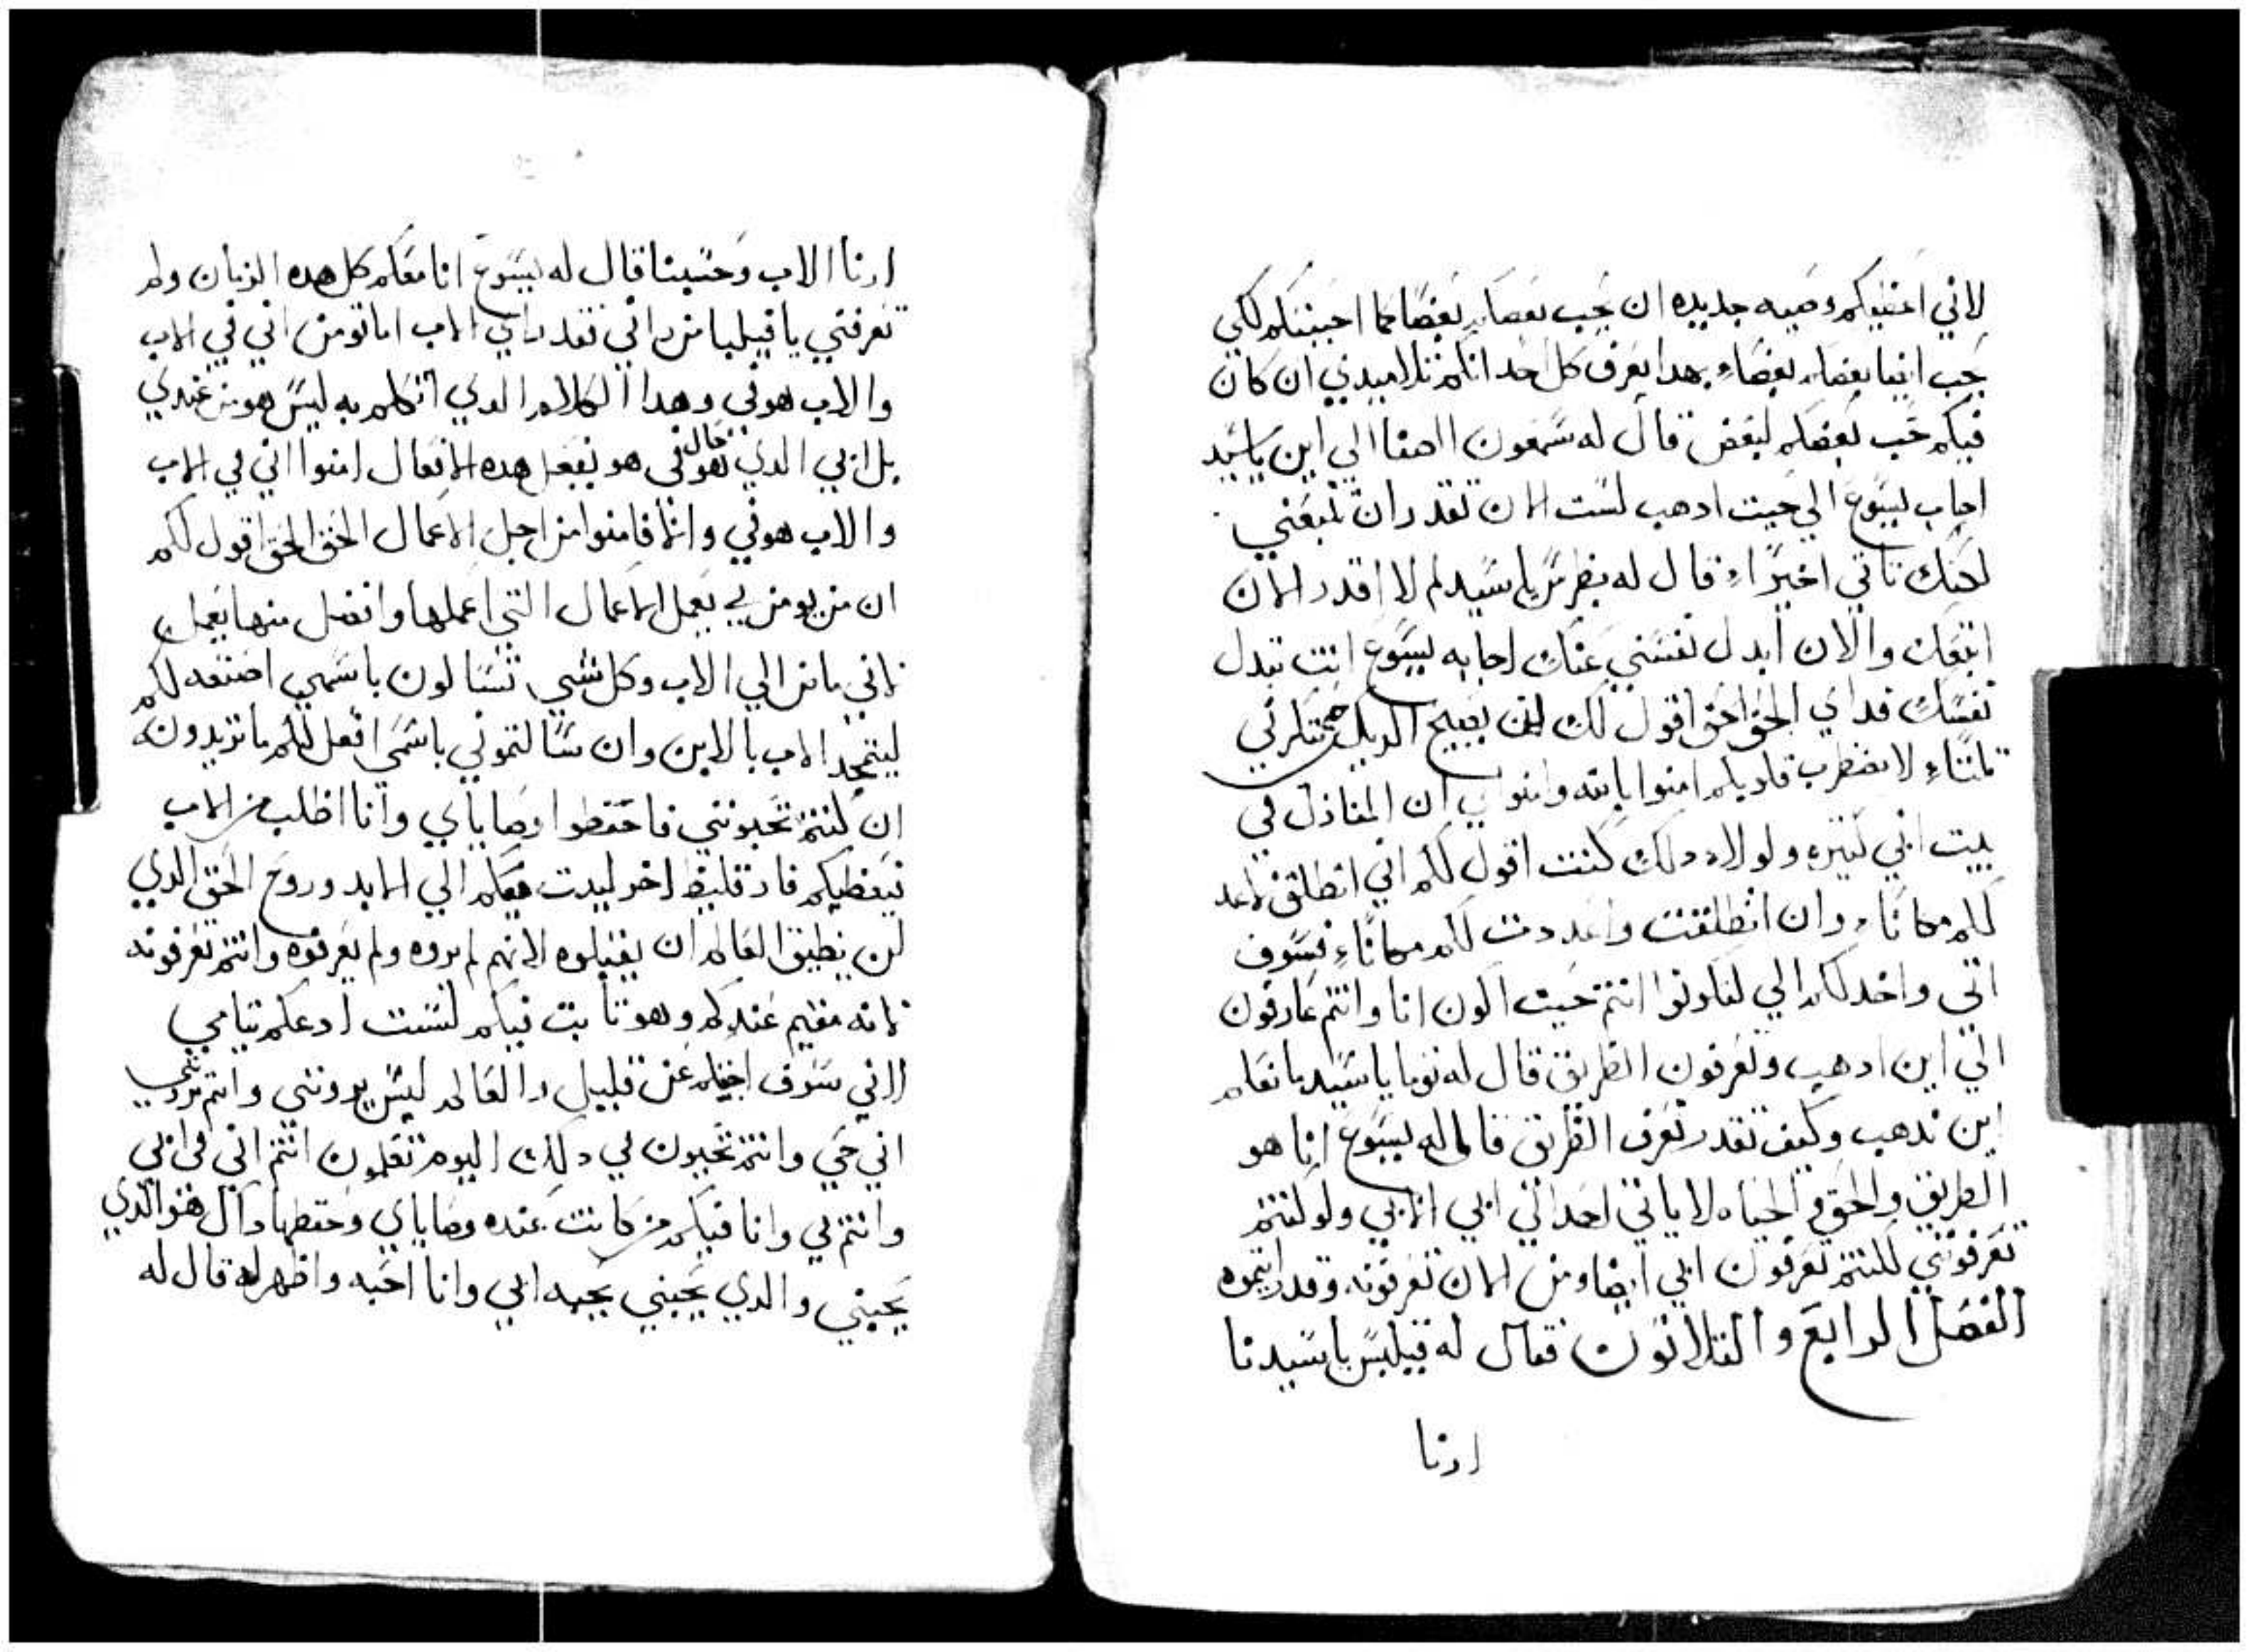 لاني اعطيكم وصيه جديده ان يحب بعضكم بعضا كما احببتكم لكي
يحب ايضا بعضكم بعضاء بهدا يعرف كل احد انكم تلاميدي ان كان
فيكم حب بعضكم لبعض قال له سمعون الصفا الي اين يا سيد
اجاب يسوع الي حيت ادهب لست الان تقدر ان تتبعني
لكنك تاتي اخيراء قال له بطرس يا سيد لم لا اقدر الان
اتبعك والان ابدل نفسي عنك اجابه يسوع انت تبدل
نفسك فداي الحق الحق اقول لك لن يصيح الديك حتي تنكرني
تلتاء لا تضطرب قلوبكم امنوا بالله وامنوا بي ان المنازل في
بيت ابي كتيره ولولا دلك كنت اقول لكم اني انطلق لاعد
لكم مكاناء وان انطلقت واعددت لكم مكاناء فسوف
اتي واخدكم الي لتكونوا انتم حيت اكون انا وانتم عارفون
الي اين ادهب وتعرفون الطريق قال له توما يا سيد ما نعلم
اين تدهب وكيف نقدر نعرف الطريق قال له يسوع انا هو
الطريق والحق والحياه لا ياتي احد الي ابي الا بي ولو كنتم
تعرفوني لكنتم تعرفون ابي ايضا ومن الان تعرفونه وقد رايتموه
الفصل الرابع والتلاتون فقال له فيلبس يا سيدنا
ارنا
ارنا الاب وحسبنا قال له يسوع انا معكم كل هده الزمان ولم
تعرفني يا فيلبا من راني فقد راي الاب اما تومن اني في الاب
والاب هو في وهدا الكلام الدي اتكلم به ليس هو من عندي
بل ابي الدي هو حال في هو يفعل هده الافعال امنوا اني في الاب
والاب هو في والا فامنوا من اجل الاعمال الحق الحق اقول لكم
ان من يومن بي يعمل الاعمال التي اعملها وافضل منها يعمل
لاني ماض الي الاب وكل شي تسالون باسمي اصنعه لكم
ليتمجد الاب بالابن وان سالتموني باسمي افعل لكم ما تريدون
ان كنتم تحبونني فاحفظوا وصاياي وانا اطلب من الاب
فيعطيكم فارقليط اخر ليتبت معكم الي الابد وروح الحق الدي
لن يطيق العالم ان يقبلوه لانهم لم يروه ولم يعرفوه وانتم تعرفونه
لانه مقيم عندكم وهو تابت فيكم لست ادعكم يتامي
لاني سوف اجيكم عن قليل والعالم ليس يرونني وانتم تروني
اني حي وانتم تحيون لي دلك اليوم تعلمون انتم اني في ابي
وانتم في وانا فيكم من كانت عنده وصاياي وحفظها داك هو الدي
يحبني والدي يحبني يحبه ابي وانا احبه واظهر له قال له